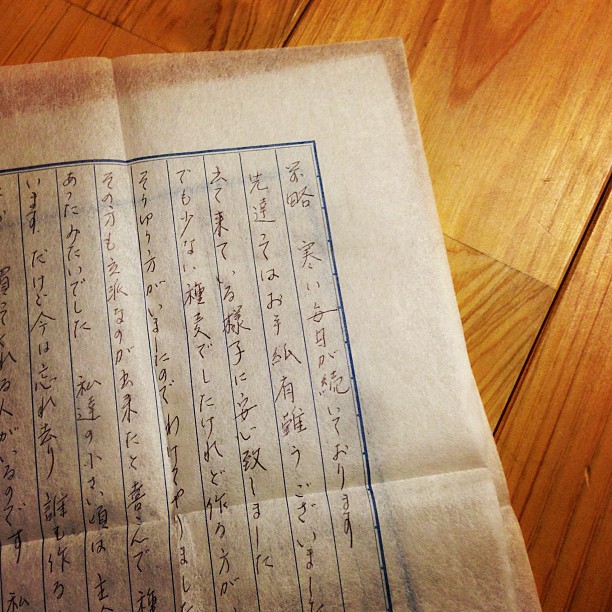 前略 寒い毎日が続いております
先達ってはお手紙有難うございまし
出て来ている様子に安心致しました
でも少ない種麦でしたけれど作る方が
そうゆう方がいましたので わけてやりました
その方も立派なのが出来たと喜んで 種
あったみたいでした 私達の小さい頃は 主
います だけど今は忘れ去り 誰も作る
買ってくれる人がいるのです 私